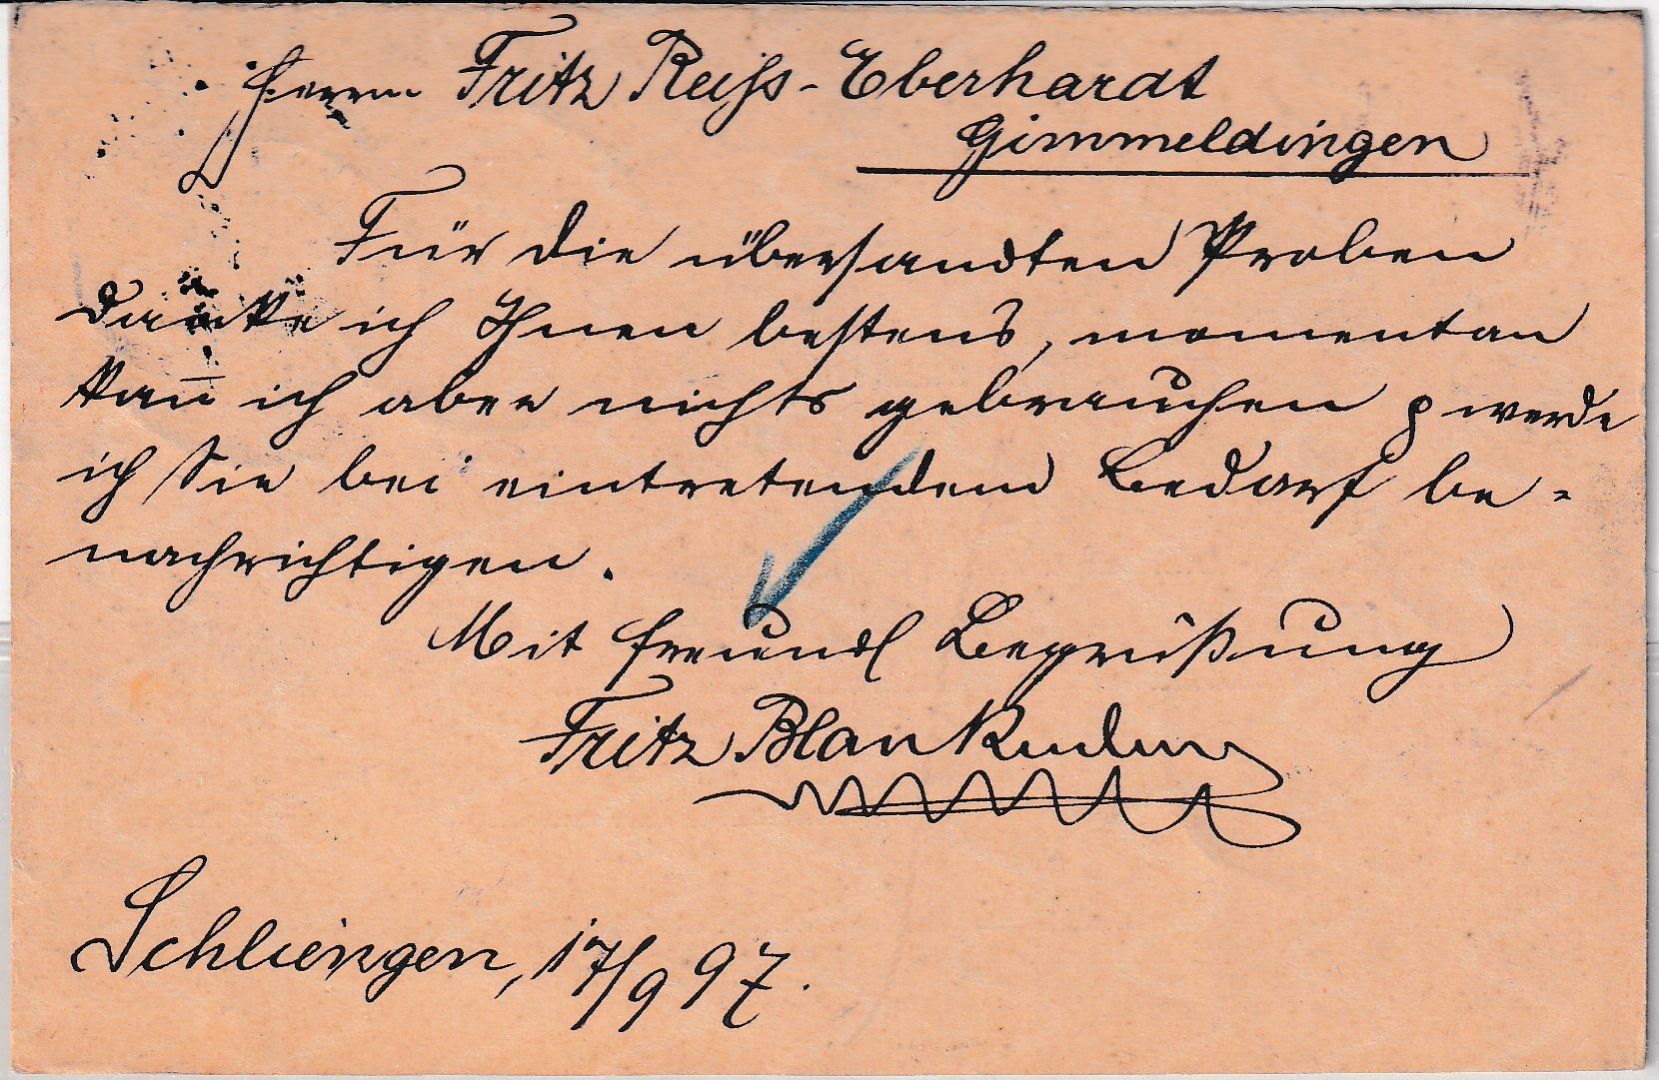 Herrn Fritz Reiss-Eberhardt
Gimmeldingen
Für die übersandten Proben
danke ich Ihnen bestens, momentan
kan̄ ich aber nichts gebrauchen & werde
ich Sie bei eintretendem Bedarf be-
nachrichtigen.
Mit freundl Begrüßung
Fritz
Schliengen, 17/9 97.